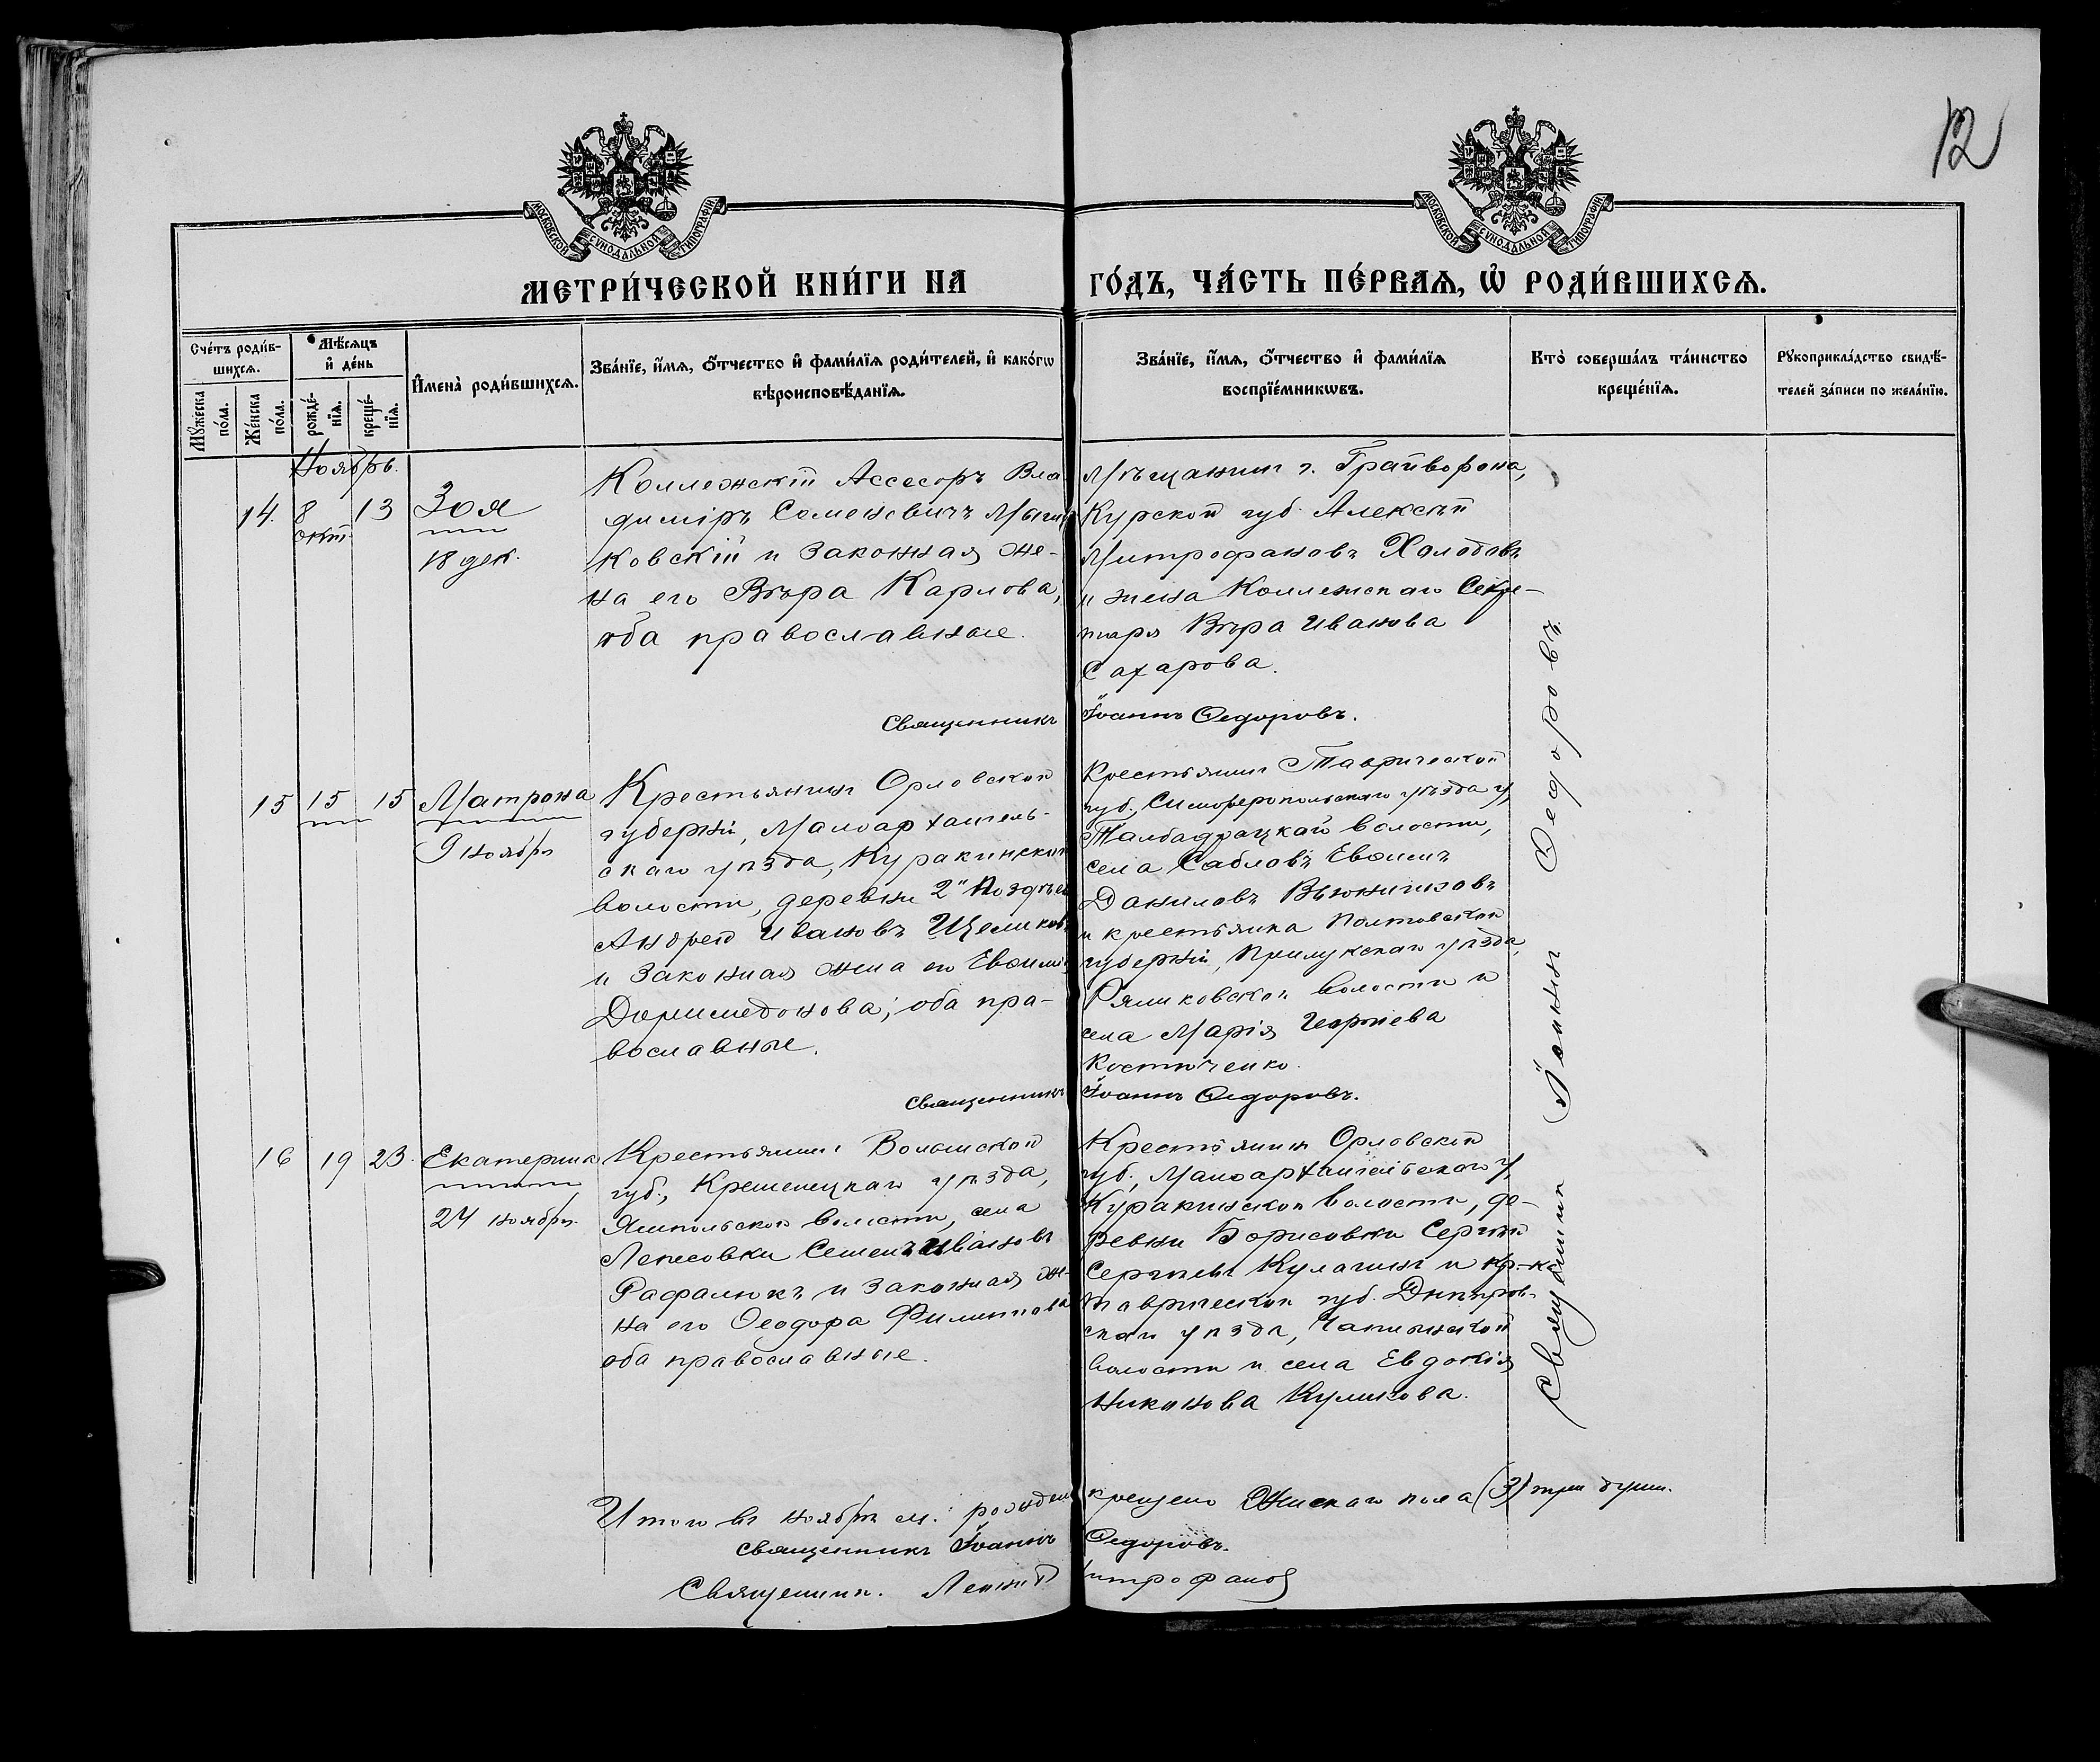 12
МОСКОВСКОЙ СѴНОДАЛЬНОЙ ТИПОГРАФІИ
МОСКОВСКОЙ СѴНОДАЛЬНОЙ ТИПОГРАФІИ
МЕТРИ́ЧЕСКОЙ КНИ́ГИ НА ГО́ДЪ, ЧА́СТЬ ПЕ́РВАѦ, Ѡ҆ РОДИ́ВШИХСѦ.
Сче́тъ роди́в-
шихсѧ.
Мꙋ́жеска по́ла.
Же́нска по́ла.
Мѣ́сѧцъ
и҆ де́нь
рожде́-
нїѧ.
креще́-
нїѧ.
И҆мена̀ роди́вшихсѧ.
Зва́нїе, и҆́мѧ, ѻ҆́тчество и҆ фами́лїѧ роди́телей, и҆ како́гѡ
вѣроисповѣ́данїѧ.
Зва́нїе, и҆́мѧ, ѻ҆́тчество и҆ фами́лїѧ
воспрїе́мникѡвъ.
Кто̀ соверша́лъ та́инство
креще́нїѧ.
Рꙋкоприкла́дство свидѣ́-
телей за́писи по жела́нїю.
Ноябрь.
14. 8 13 Зоя
окт.
18 дек.
Коллежскій Ассесоръ Вла
диміръ Семеновичъ
ковскій и законная же-
на его Вѣра Карлова,
оба православные.
Мѣщанинъ г. Грайворона,
Курской губ. Алексѣй
Митрофановъ Холодовъ
и жена Коллежскаго Секре-
таря Вѣра Иванова
Сахарова.
Священникъ Іоаннъ Ѳедоровъ.
15 15 15 Матрона
9 ноябрь
Крестьянинъ Орловской
губерніи, Малоархангель-
скаго уѣзда, Куракинской
волости, деревни 2й
Андрей Ивановъ
и законная жена его Евфимія
Доримедонова; оба пра-
вославные.
Крестьянинъ Таврической
губ., Симферопольскаго уѣзда
волости,
села Сабловъ Евфимъ
Даниловъ
и крестьянка Полтавской
губерніи, Прилукскаго уѣзда,
волости и
села Марія Георгіева
Костюченко.
Священникъ Іоаннъ Ѳедоровъ.
16 19 23. Екатерина
24 ноябрь.
Крестьянинъ Волынской
губ., Кременецкаго уѣзда,
Ямпольской волости, села
Лепесовки Семенъ Ивановъ
Рафалюкъ и законная же-
на его Ѳеодора Филиппова
оба православные.
Крестьянинъ Орловской
губ., Малоархангельскаго у,
Куракинской волости, де-
ревни Борисовки Сергѣй
Сергѣевъ Кулагинъ и кр-ка
Таврической губ. Днѣпров-
скаго уѣзда, Чаплинской
волости и села Евдокія
Никонова Куликова.
Священникъ Іоаннъ Ѳедоровъ.
Итого въ ноябрѣ м. рожден крещено Женскаго пола (3) три души.
Священникъ Іоаннъ Ѳедоровъ.
Священник. Митрофанов